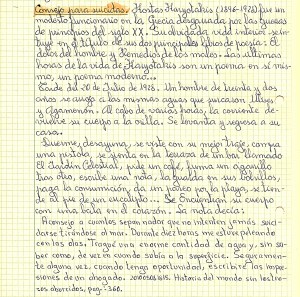 Consejo para suicidas. Kostas Karyotakis (1896-1928) fue un
modesto funcionario en la Grecia desgarrada por las guerras
de principios del siglo XX. Su obsesiva vida interior se in-
tuye en el título de sus dos principales libros de poesía: El
dolor del hombre y Remedios de los males. Las últimas
horas de la vida de Karyotakis son un poema en sí mis-
mo, un poema moderno.
Tarde del 20 de Julio de 1928. Un hombre de treinta y dos
años se arroja a las mismas aguas que surcaron Ulises
y Agamenón. Al cabo de varias horas, la corriente de-
vuelve su cuerpo a la orilla. Se levanta y regresa a su
casa.
Duerme, desayuna, se viste con su mejor traje, compra
una pistola, se sienta en la terraza de un bar llamado
El Jardín Celestial, pide un café, fuma un cigarrillo
tras otro, escribe una nota, la guarda en sus bolsillos,
paga la consumición, da un paseo por la playa, se tien-
de al pie de un eucalipto... Se encuentran su cuerpo
con una bala en el corazón. La nota decía:
Aconsejo a cuantos sepan nadar que no intenten jamás suici-
darse tirándose al mar. Durante diez horas me estuve peleando
con las olas. Tragué una enorme cantidad de agua y, sin sa-
ber como, de vez en cuando subía a la superficie. Seguramen-
te alguna vez, cuando tenga oportunidad, escribiré las impre-
siones de un ahogado. Historia del mundo sin los rostros
aborcidos, pag-360.